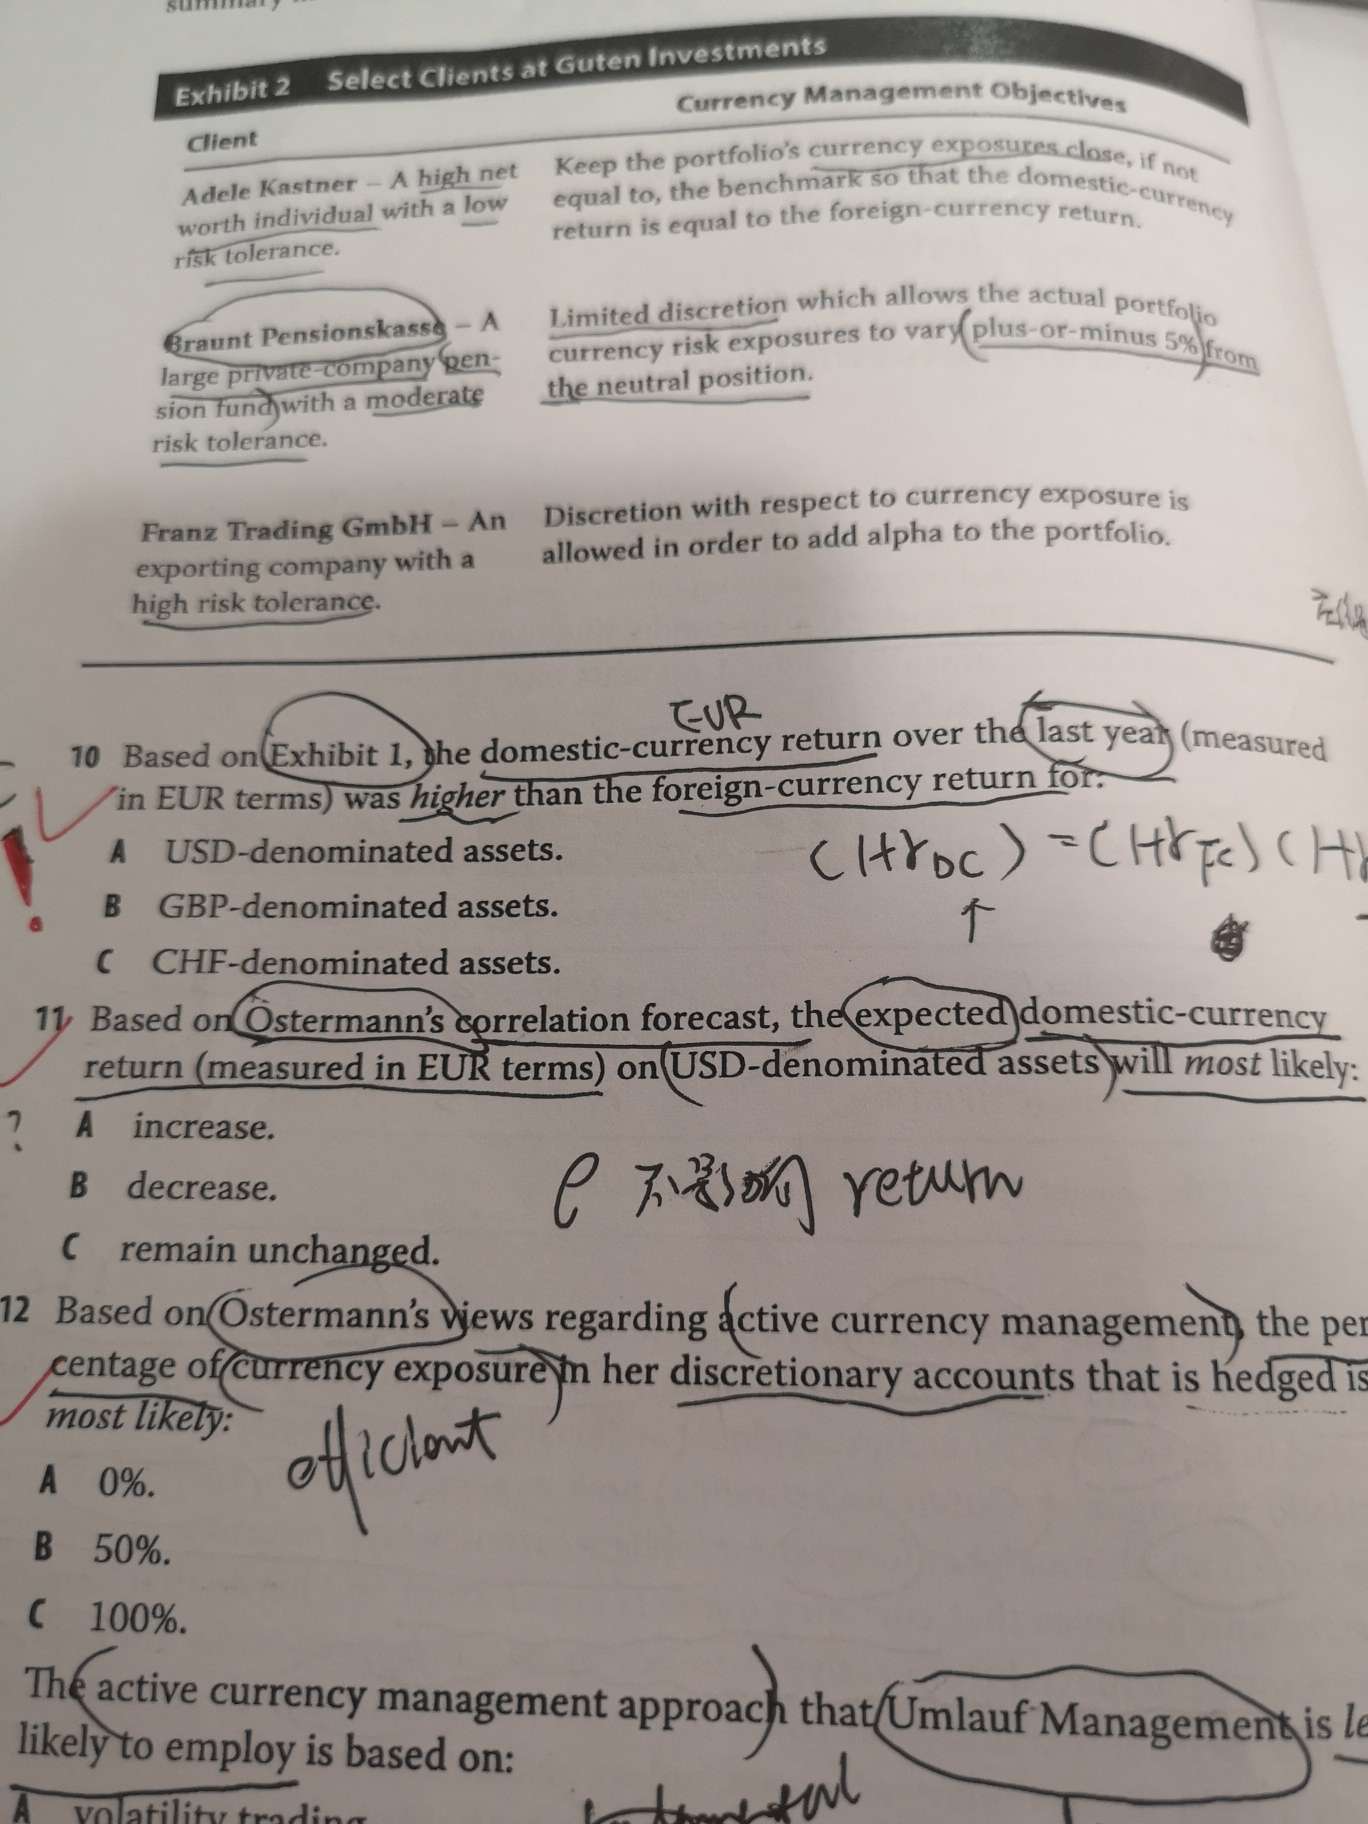 summary
Exhibit 2 Select Clients at Guten Investments
Client
Currency Management Objectives
Adele Kastner – A high net
worth individual with a low
risk tolerance.
Keep the portfolio's currency exposures close, if not
equal to, the benchmark so that the domestic-currency
return is equal to the foreign-currency return.
Braunt Pensionskasse – A
large private-company pen-
sion fund with a moderate
risk tolerance.
Limited discretion which allows the actual portfolio
currency risk exposures to vary plus-or-minus 5% from
the neutral position.
Franz Trading GmbH – An
exporting company with a
high risk tolerance.
Discretion with respect to currency exposure is
allowed in order to add alpha to the portfolio.
EUR
10 Based on Exhibit 1, the domestic-currency return over the last year (measured
in EUR terms) was higher than the foreign-currency return for:
A USD-denominated assets.
(1+r_DC) = (1+r_FC)(1+r
B GBP-denominated assets.
C CHF-denominated assets.
11 Based on Ostermann's correlation forecast, the expected domestic-currency
return (measured in EUR terms) on USD-denominated assets will most likely:
? A increase.
B decrease.
ρ 不影响 return
C remain unchanged.
12 Based on Ostermann's views regarding active currency management, the per
centage of currency exposure in her discretionary accounts that is hedged is
most likely:
efficient
A 0%.
B 50%.
C 100%.
The active currency management approach that Umlauf Management is le
likely to employ is based on:
A volatility trading